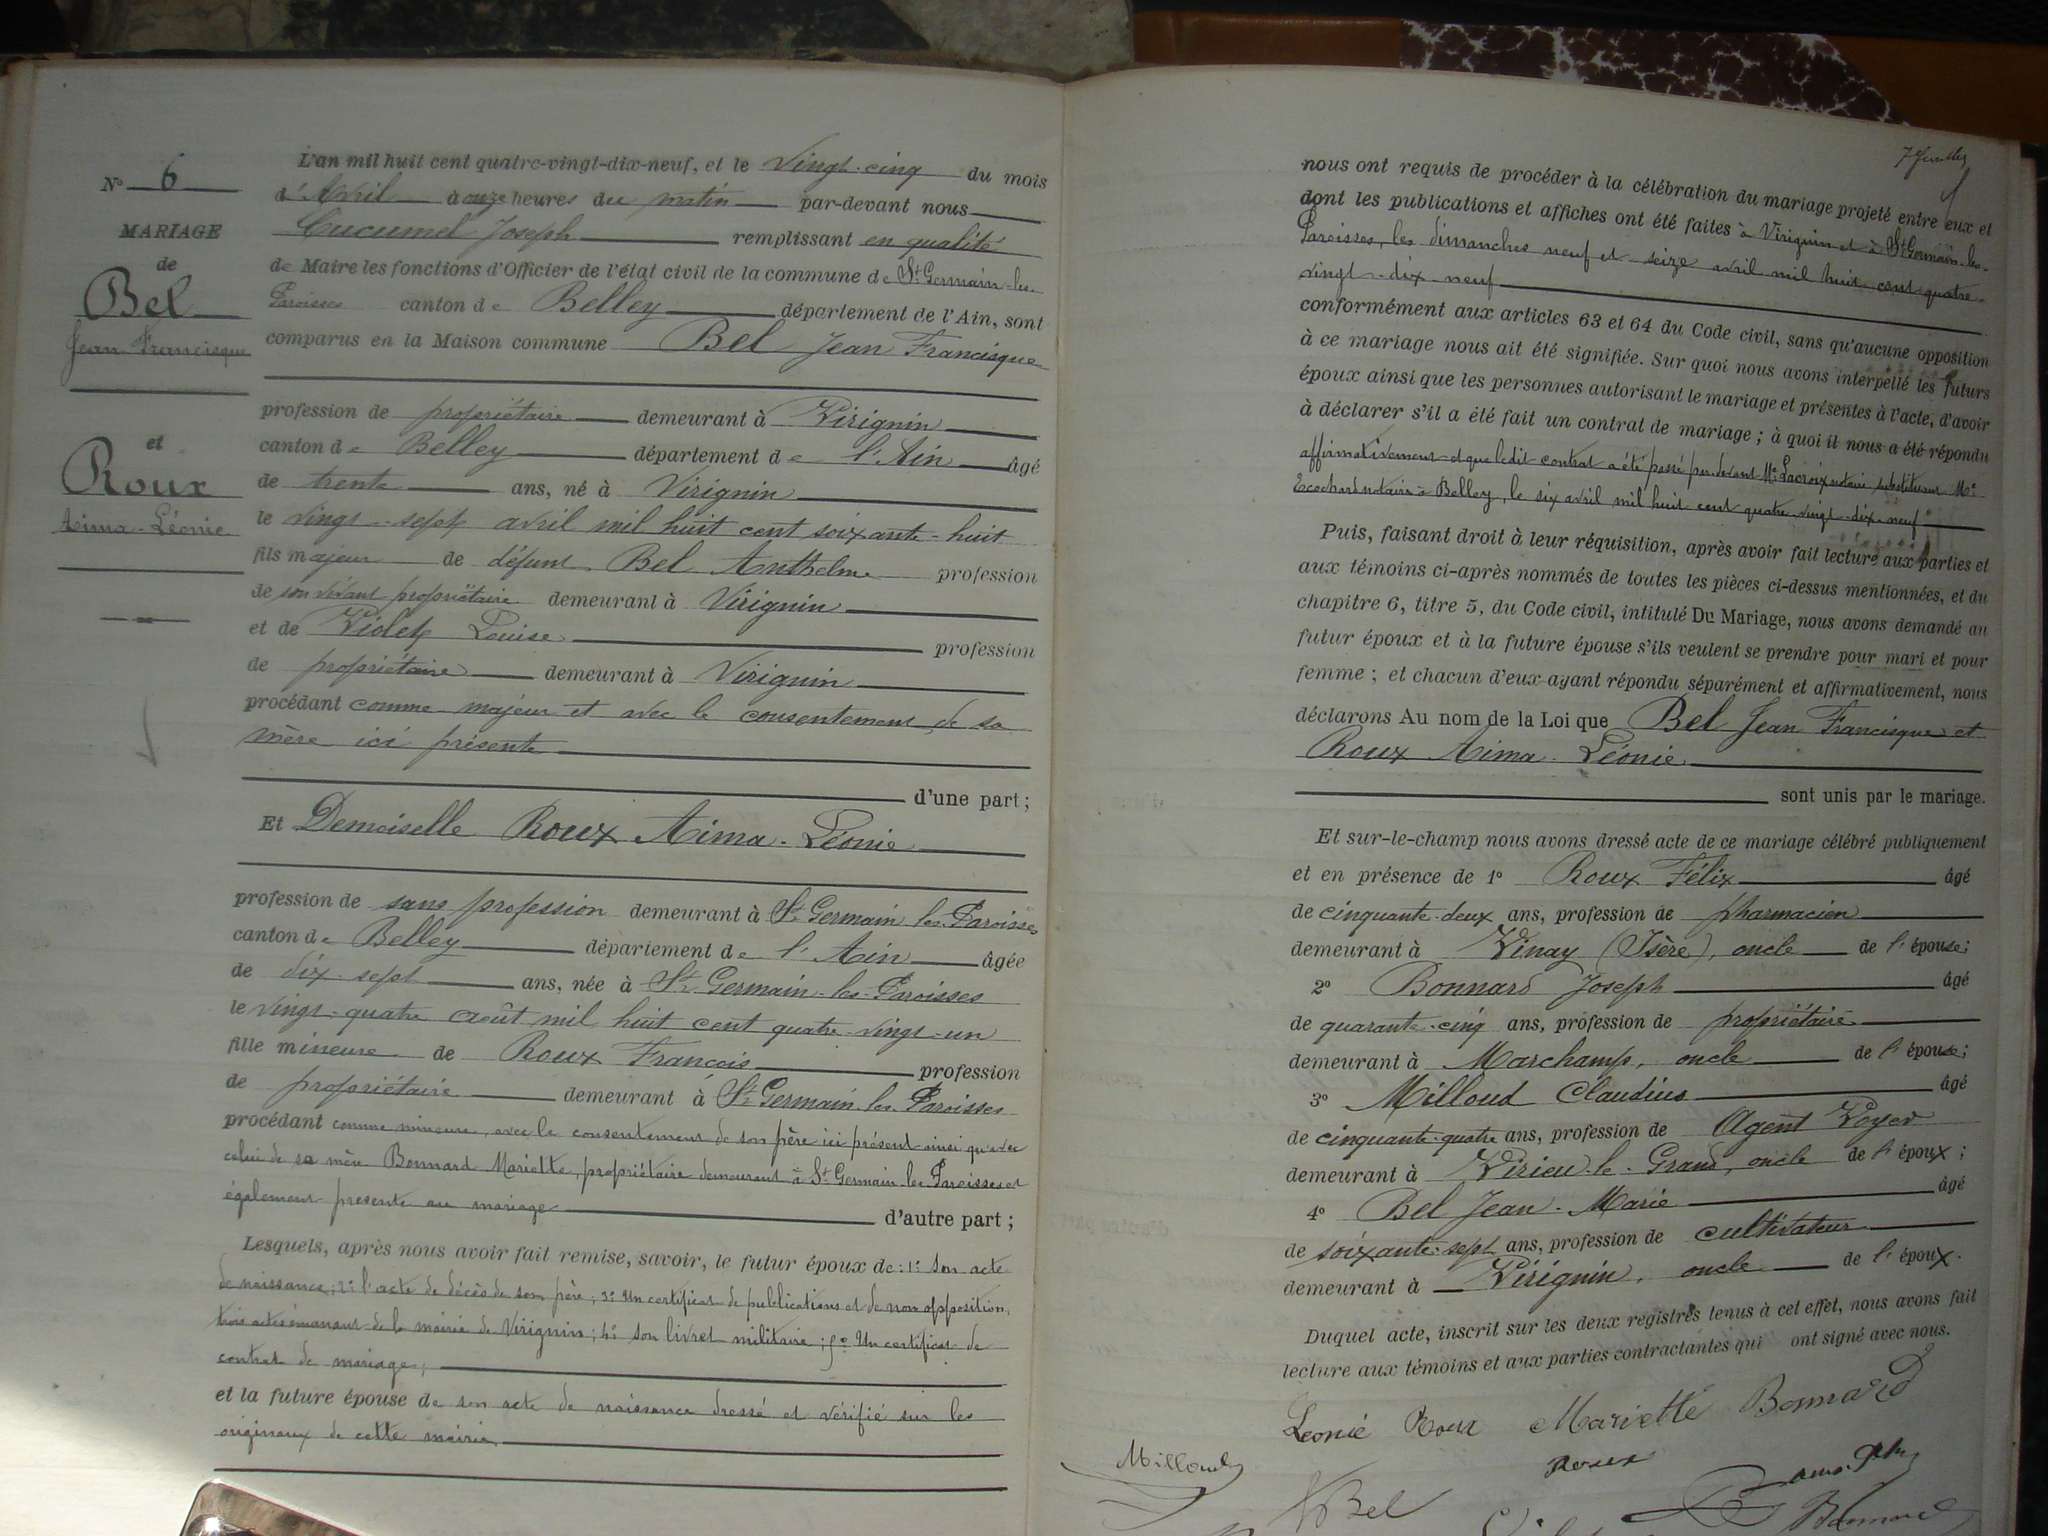 N° 6
MARIAGE
de
Bel
Jean Francisque
et
Roux
Aima-Léonie
L'an mil huit cent quatre-vingt-dix-neuf, et le Vingt-cinq du mois
d'Avril à onze heures du matin par-devant nous
Cucumel Joseph remplissant en qualité
de Maire les fonctions d'Officier de l'état civil de la commune de St Germain-les-
Paroisses canton de Belley département de l'Ain, sont
comparus en la Maison commune Bel Jean Francisque
profession de propriétaire demeurant à Virignin
canton de Belley département de l'Ain âgé
de trente ans, né à Virignin
le vingt-sept avril mil huit cent soixante-huit
fils majeur de défunt Bel Anthelme profession
de son vivant propriétaire demeurant à Virignin
et de Violet Louise profession
de propriétaire demeurant à Virignin
procédant comme majeur et avec le consentement de sa
mère ici présente
d'une part;
Et Demoiselle Roux Aima-Léonie
profession de sans profession demeurant à St Germain-les-Paroisses
canton de Belley département de l'Ain âgée
de dix-sept ans, née à St Germain-les-Paroisses
le vingt-quatre août mil huit cent quatre-vingt-un
fille mineure de Roux François profession
de propriétaire demeurant à St Germain les Paroisses
procédant comme mineure, avec le consentement de son père ici présent ainsi qu'avec
celui de sa mère Bonnard Mariette, propriétaire demeurant à St Germain-les Paroisses et
également présente au mariage d'autre part;
Lesquels, après nous avoir fait remise, savoir, le futur époux de: 1° Son acte
de naissance; 2° l'acte de décès de son père; 3° Un certificat de publications et de non opposition,
trois actes émanant de la mairie de Virignin; 4° son livret militaire; 5° Un certificat de
contrat de mariage;
et la future épouse de son acte de naissance dressé et vérifié sur les
originaux de cette mairie
nous ont requis de procéder à la célébration du mariage projeté entre eux et
dont les publications et affiches ont été faites à Virignin et à St Germain-les-
Paroisses, les dimanches neuf et seize avril mil huit cent quatre-
vingt-dix-neuf
conformément aux articles 63 et 64 du Code civil, sans qu'aucune opposition
à ce mariage nous ait été signifiée. Sur quoi nous avons interpellé les futurs
époux ainsi que les personnes autorisant le mariage et présentes à l'acte, d'avoir
à déclarer s'il a été fait un contrat de mariage; à quoi il nous a été répondu
affirmativement et que ledit contrat a été passé par devant Me Lacroix notaire substituant Me
Ecochard notaire à Belley, le six avril mil huit cent quatre-vingt-dix-neuf
Puis, faisant droit à leur réquisition, après avoir fait lecture aux parties et
aux témoins ci-après nommés de toutes les pièces ci-dessus mentionnées, et du
chapitre 6, titre 5, du Code civil, intitulé Du Mariage, nous avons demandé au
futur époux et à la future épouse s'ils veulent se prendre pour mari et pour
femme; et chacun d'eux ayant répondu séparément et affirmativement, nous
déclarons Au nom de la Loi que Bel Jean Francisque et
Roux Aima-Léonie
sont unis par le mariage.
Et sur-le-champ nous avons dressé acte de ce mariage célébré publiquement
et en présence de 1° Roux Félix âgé
de cinquante-deux ans, profession de pharmacien
demeurant à Vinay (Isère), oncle de l'épouse;
2° Bonnard Joseph âgé
de quarante-cinq ans, profession de propriétaire
demeurant à Marchamp, oncle de l'épouse;
3° Milloud Claudius âgé
de cinquante-quatre ans, profession de Agent Voyer
demeurant à Virieu-le-Grand, oncle de l'époux;
4° Bel Jean-Marie âgé
de soixante-sept ans, profession de cultivateur
demeurant à Virignin, oncle de l'époux.
Duquel acte, inscrit sur les deux registres tenus à cet effet, nous avons fait
lecture aux témoins et aux parties contractantes qui ont signé avec nous.
Léonie Roux Mariette Bonnard
Milloud Roux
Bel Bonnard